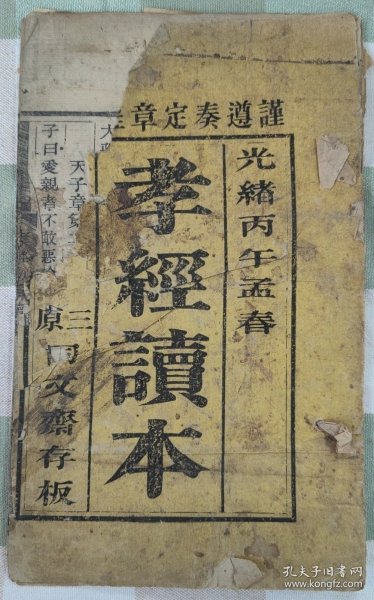 謹遵奏定章
光緒丙午孟春
孝經讀本
三原
文齋存板
天子章第二
子曰愛親者不敢惡
孔夫子旧书网
www.kongfz.com